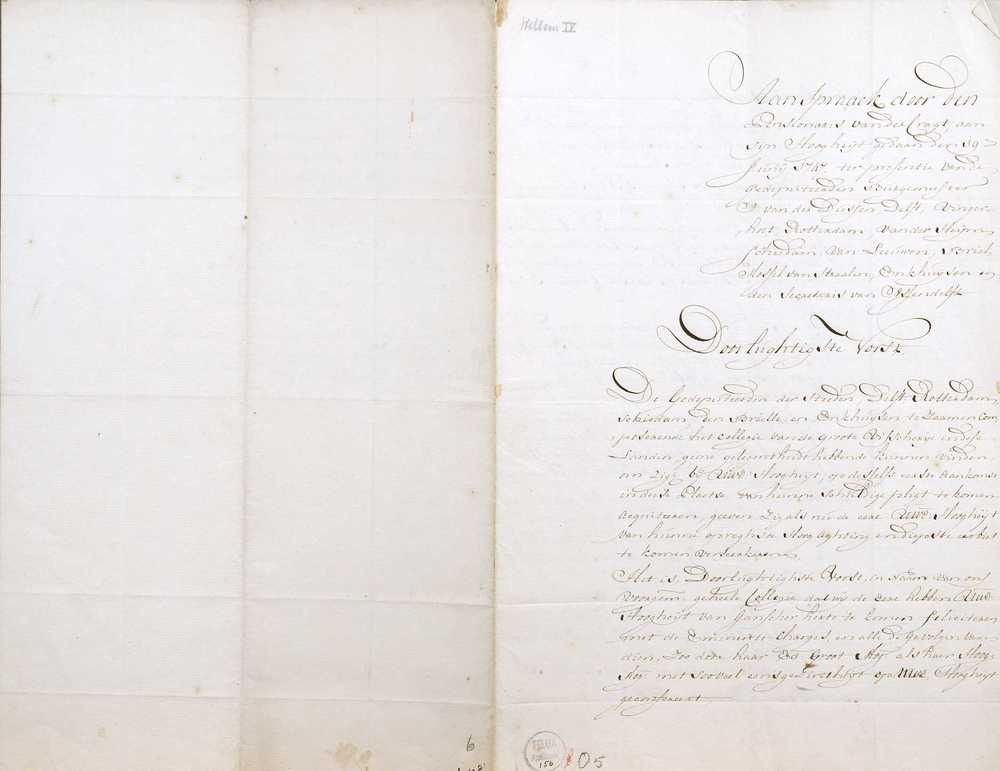 Willem IV
Aanspraack door den
Pensionaris van der Cragt, aan
zijn Hoogheyt gedaan den 19e
Junij 1747. ter presentie van de
Gedeputeerden Burgermeester
van der Dussen Delft,
hoet, Rotterdam, van der Heijm
Schiedam, van Leeuwen, Briel
van Straalen, Enkhuysen en
den Secretaris van Assendelft
Doorlughtigste Vorst
De Gedeputeerden der Steeden, Delft, Rotterdam,
Schiedam den Brielle, en Enkhuysen te Zaamen Com
poseerende het Collegie van de groote Visscherye in dese
Landen, geene geleegentheidt hebbende kunnen vinden,
om Zijn Uwe Hoogheyt, op desselfs eerste Aankomst
in deese Plaetse van hunne schuldige pligt te komen
acquiteeren, geeven Zig als nu de eere Uwe Hoogheyt
van hunne opreghte Hoog agting en diepste eerbiet
te komen verseekeren,
Het is, Doorlughtighste Vorst, in Naam van ons
Voorgem: geheele Collegie dat wij de eere hebben Uwe
Hoogheyt van Ganscher herte te komen feliciteeren
met de Eminente Charges, en alle de Gevolgen van
dien, Zoo door haar Ed: Groot Mog: als haer Hoog
Mog: met soo veel eensgezintheyt op Uwe Hoogheyt
geconfereert.
6
150
05